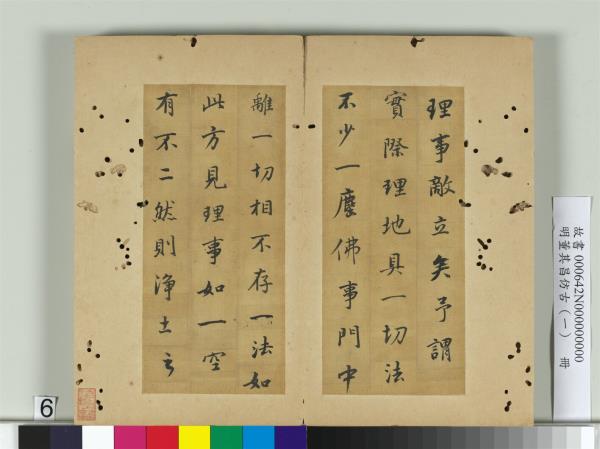 理事敵立矣予謂
實際理地具一切法
不少一塵佛事門中
離一切相不存一法如
此方見理事如一空
有不二然則淨土之
故書 000642N000000000
明董其昌仿古(一) 冊
6